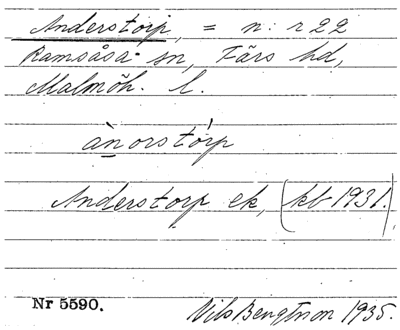 Anderstorp, = n: r 22
Ramsåsa sn, Färs hd,
Malmöh. l.
ànorstórp
Anderstorp ek, (kb 1931.)
Nr 5590.
Nils Bengtson 1935.